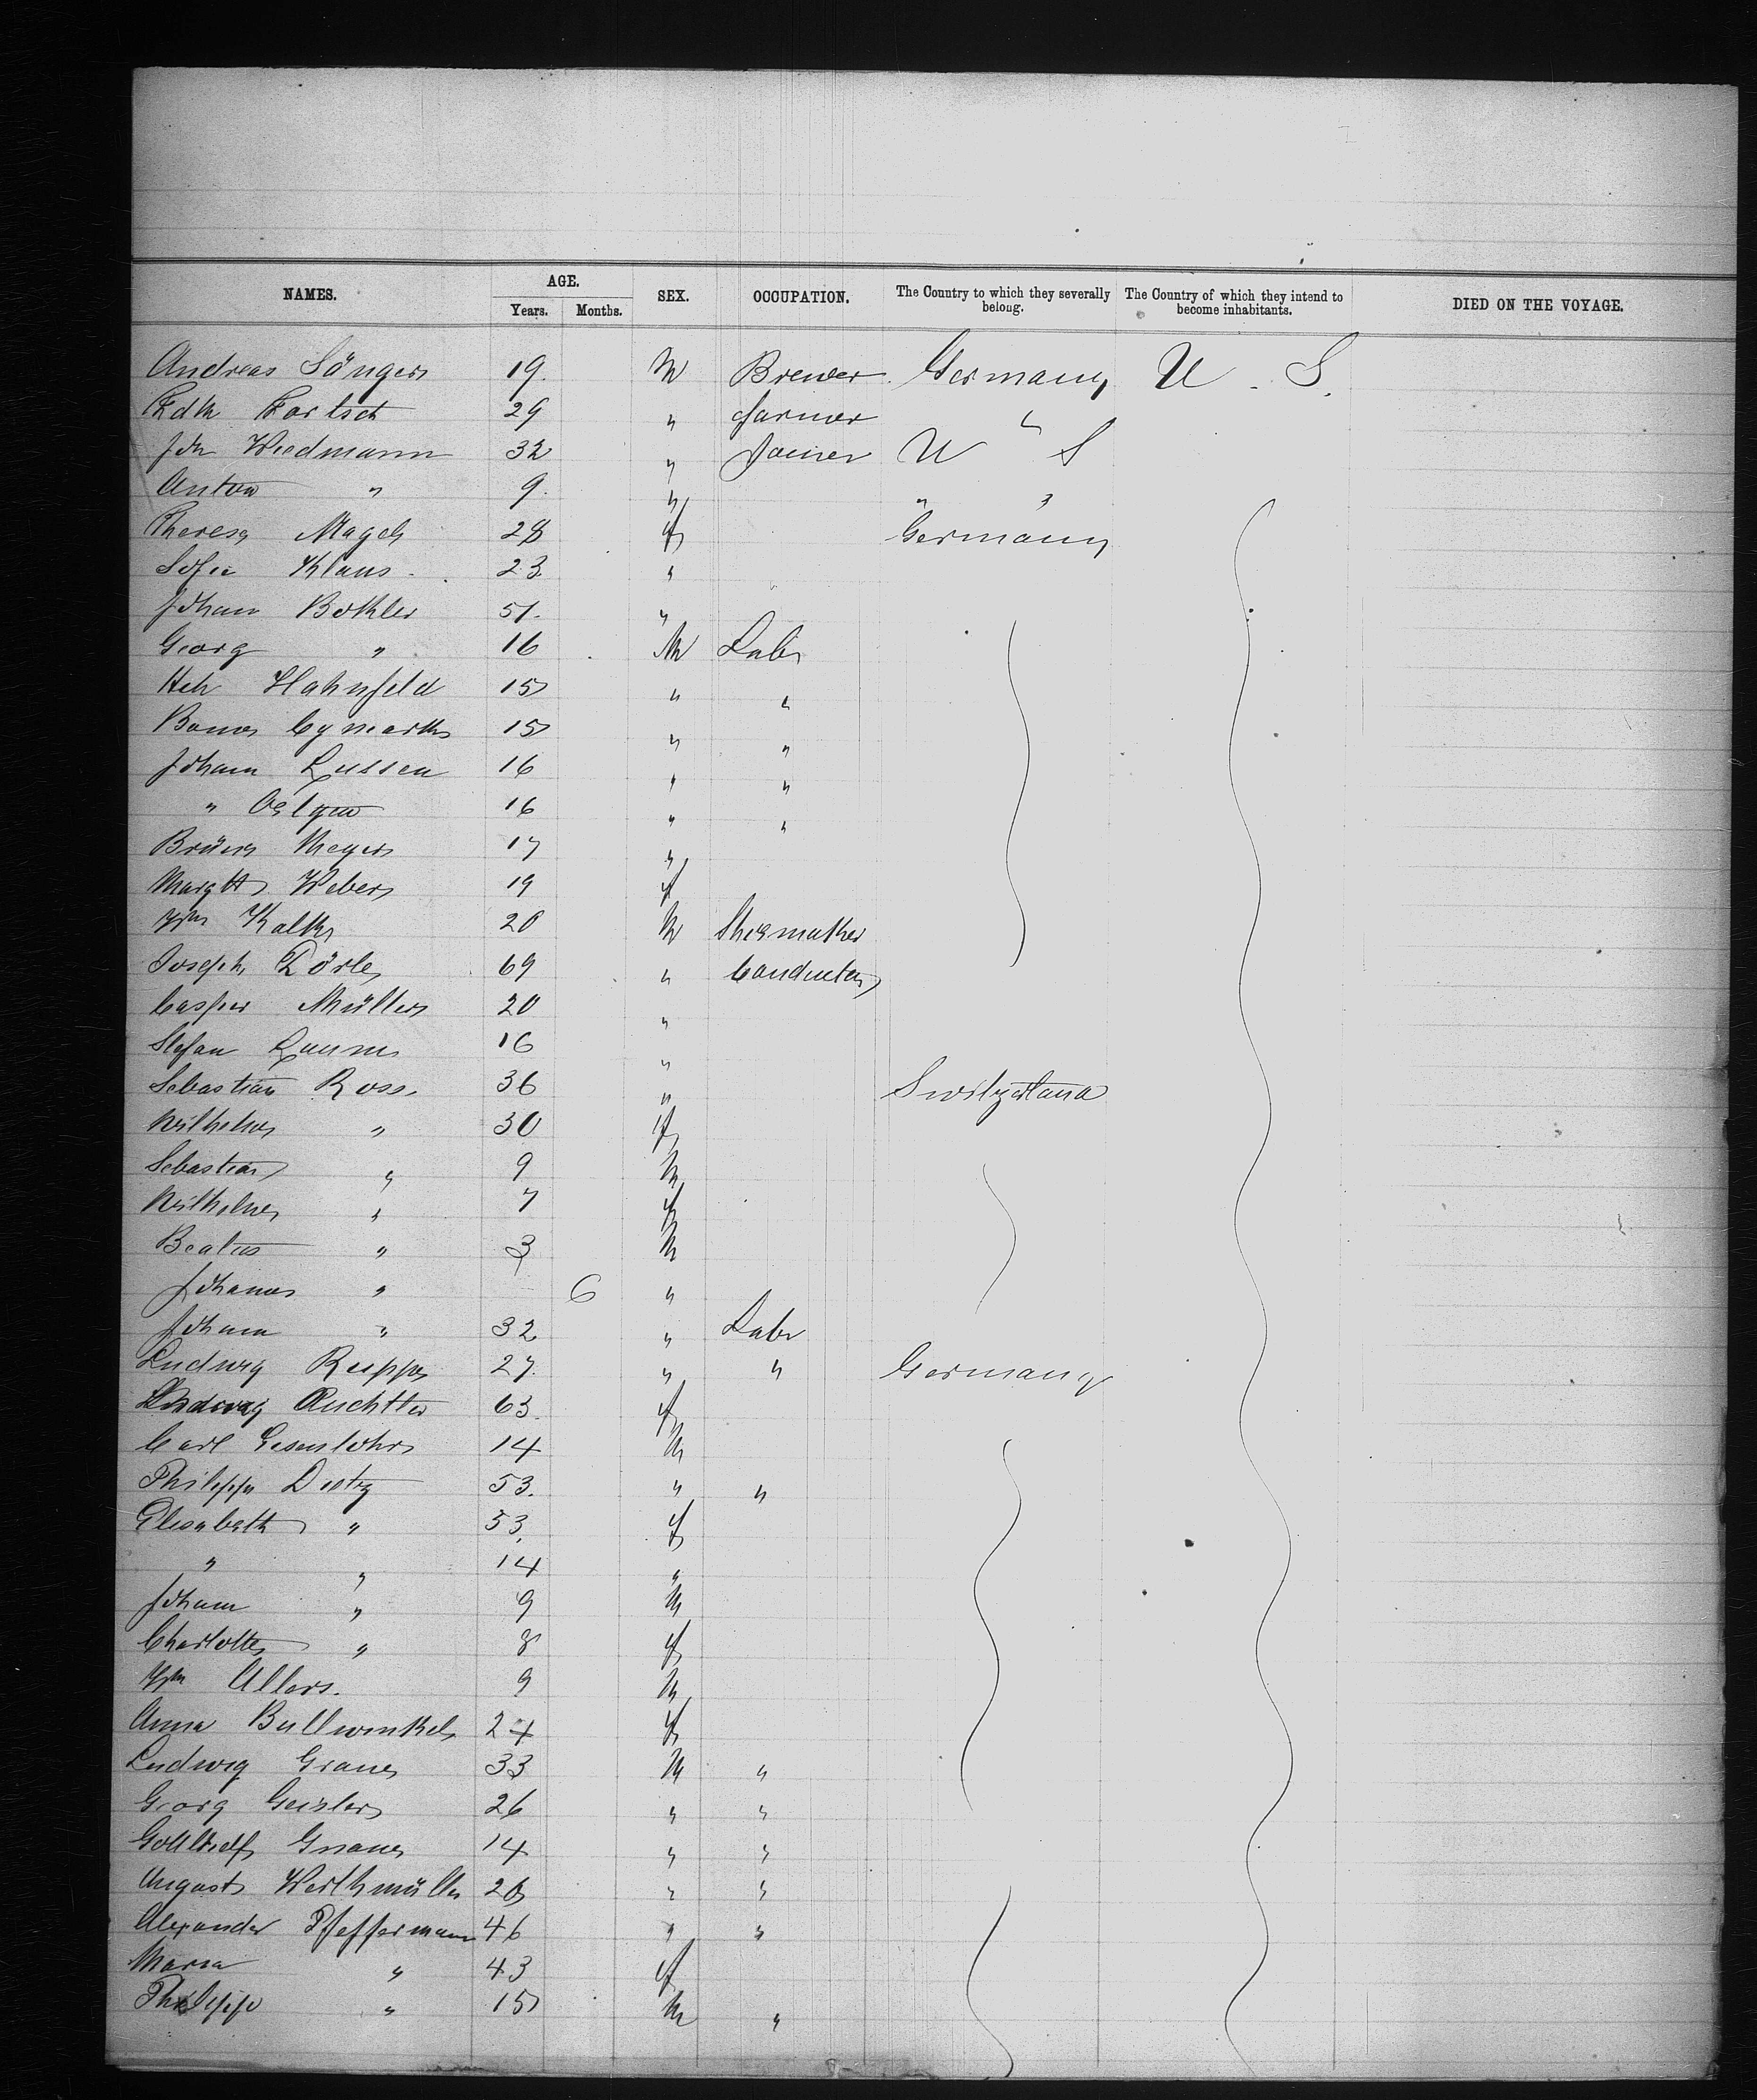 NAMES. AGE. SEX. OCCUPATION. The Country to which they severally belong. The Country of which they intend to become inhabitants. DIED ON THE VOYAGE.
Years. Months.
Andreas Sänger 19. M Brewer. Germany U. S.
29 " farmer "
Joh Wiedmann 32 " Joiner U S
Anton " 9. " " "
Theresa Magel 28 f Germany
Sofie Klaus 23 "
Johann 51. "
Georg " 16 M Labr
Hch Hahnfeld 15 " "
15 " "
Johann Lussen 16 " "
" 16 " "
Meyer 17 "
Margth Weber 19 f
Wm Kalk 20 M Shoemaker
Joseph Dörle 69 " Conductor
Casper Müller 20 "
Stefan 16 "
Sebastian Ross 36 " Switzerland
Wilhelm " 30 f
Sebastian " 9 M
Wilhelm " 7 f
Beatus " 3 M
Johannes " 6 "
Johann " 32 " Labr
Ludwig Rupp 27. " " Germany
63. f
Carl Eisenlohr 14 M
Philipp Dietz 53. " "
Elisabeth " 53. f
" " 14 "
Johann " 9 M
Charlotte " 8 f
Wm Allers. 9 M
Anna Bullwinkel 24 f
Ludwig 33 M "
Georg Geisler 26 " "
14 " "
August Werthmüller " "
Alexander Pfeffermann 46 " "
Maria " 43 f
Philipp " 15 M "